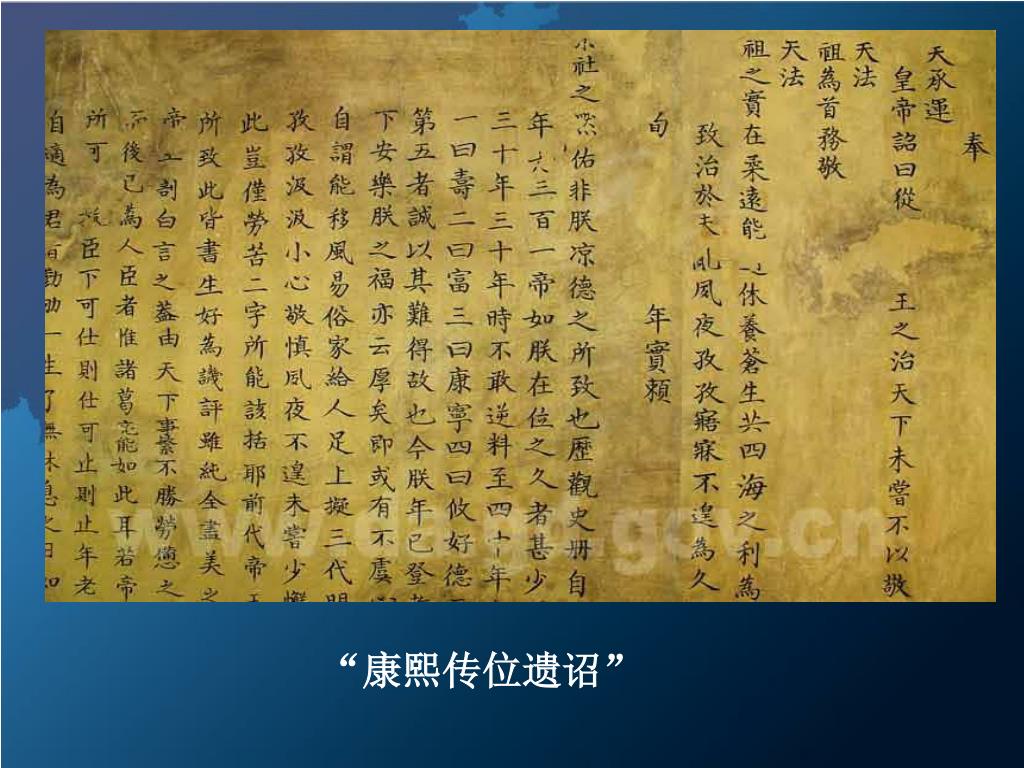 奉
天承運
皇帝詔曰從 王之治天下未嘗不以敬
天法
祖為首務敬
天法
祖之實在柔遠能 休養蒼生共四海之利為
致治於未 夙夜孜孜寤寐不遑為久
旬 年實賴
社之 佑非朕凉德之所致也歷觀史册自
年 三百一帝如朕在位之久者甚少
三十年三十年時不敢逆料至四十年
一曰壽二曰富三曰康寧四曰攸好德
第五者誠以其難得故也今朕年已登
下安樂朕之福亦云厚矣即或有不虞
自謂能移風易俗家給人足上擬三代
孜孜汲汲小心敬慎夙夜不遑未嘗少
此豈僅勞苦二字所能該括耶前代帝
所致此皆書生好為譏評雖純全盡美之
帝 剖白言之蓋由天下事繁不勝勞憊之
後已為人臣者惟諸葛亮能如此耳若帝
所可 臣下可仕則仕可止則止年老
自適為君 一生了無休息之日如
www. .gov.cn
“康熙传位遗诏”